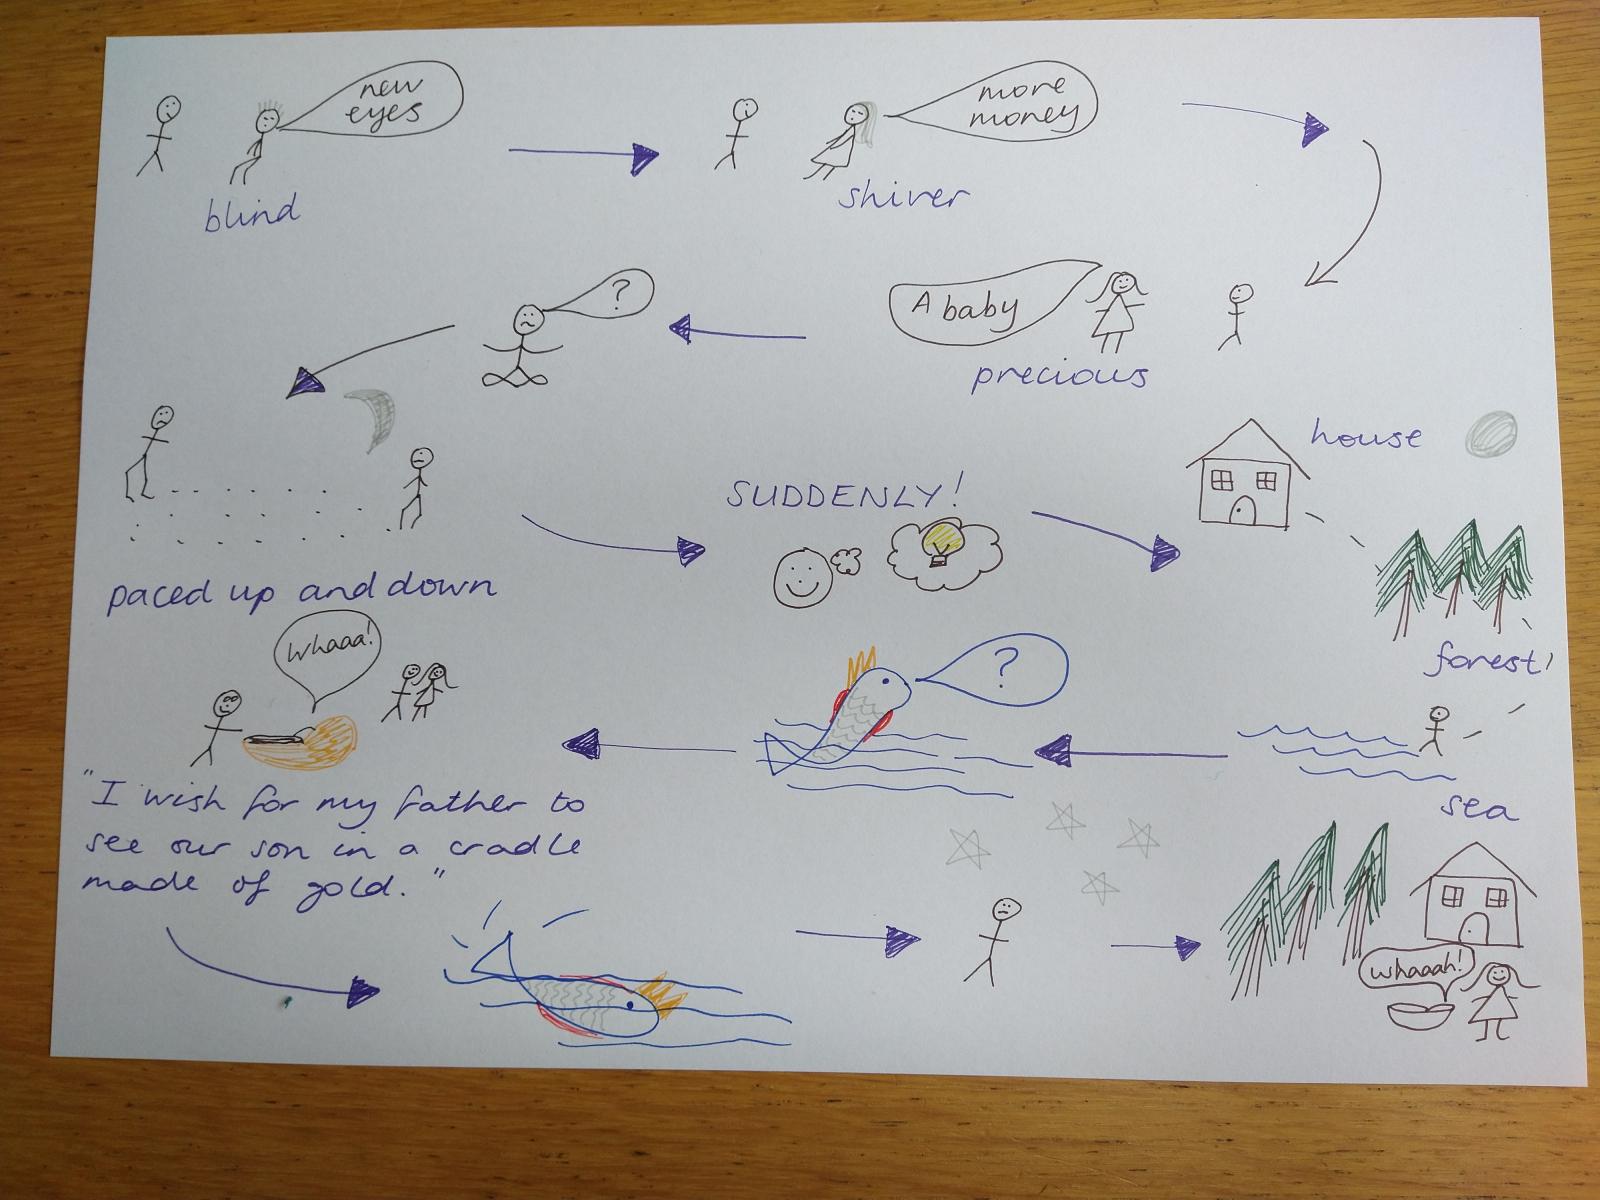 new
eyes
blind
more
money
shiver
A baby
precious
?
paced up and down
SUDDENLY!
house
forest
sea
?
Whaaa!
"I wish for my father to
see our son in a cradle
made of gold."
whaaah!